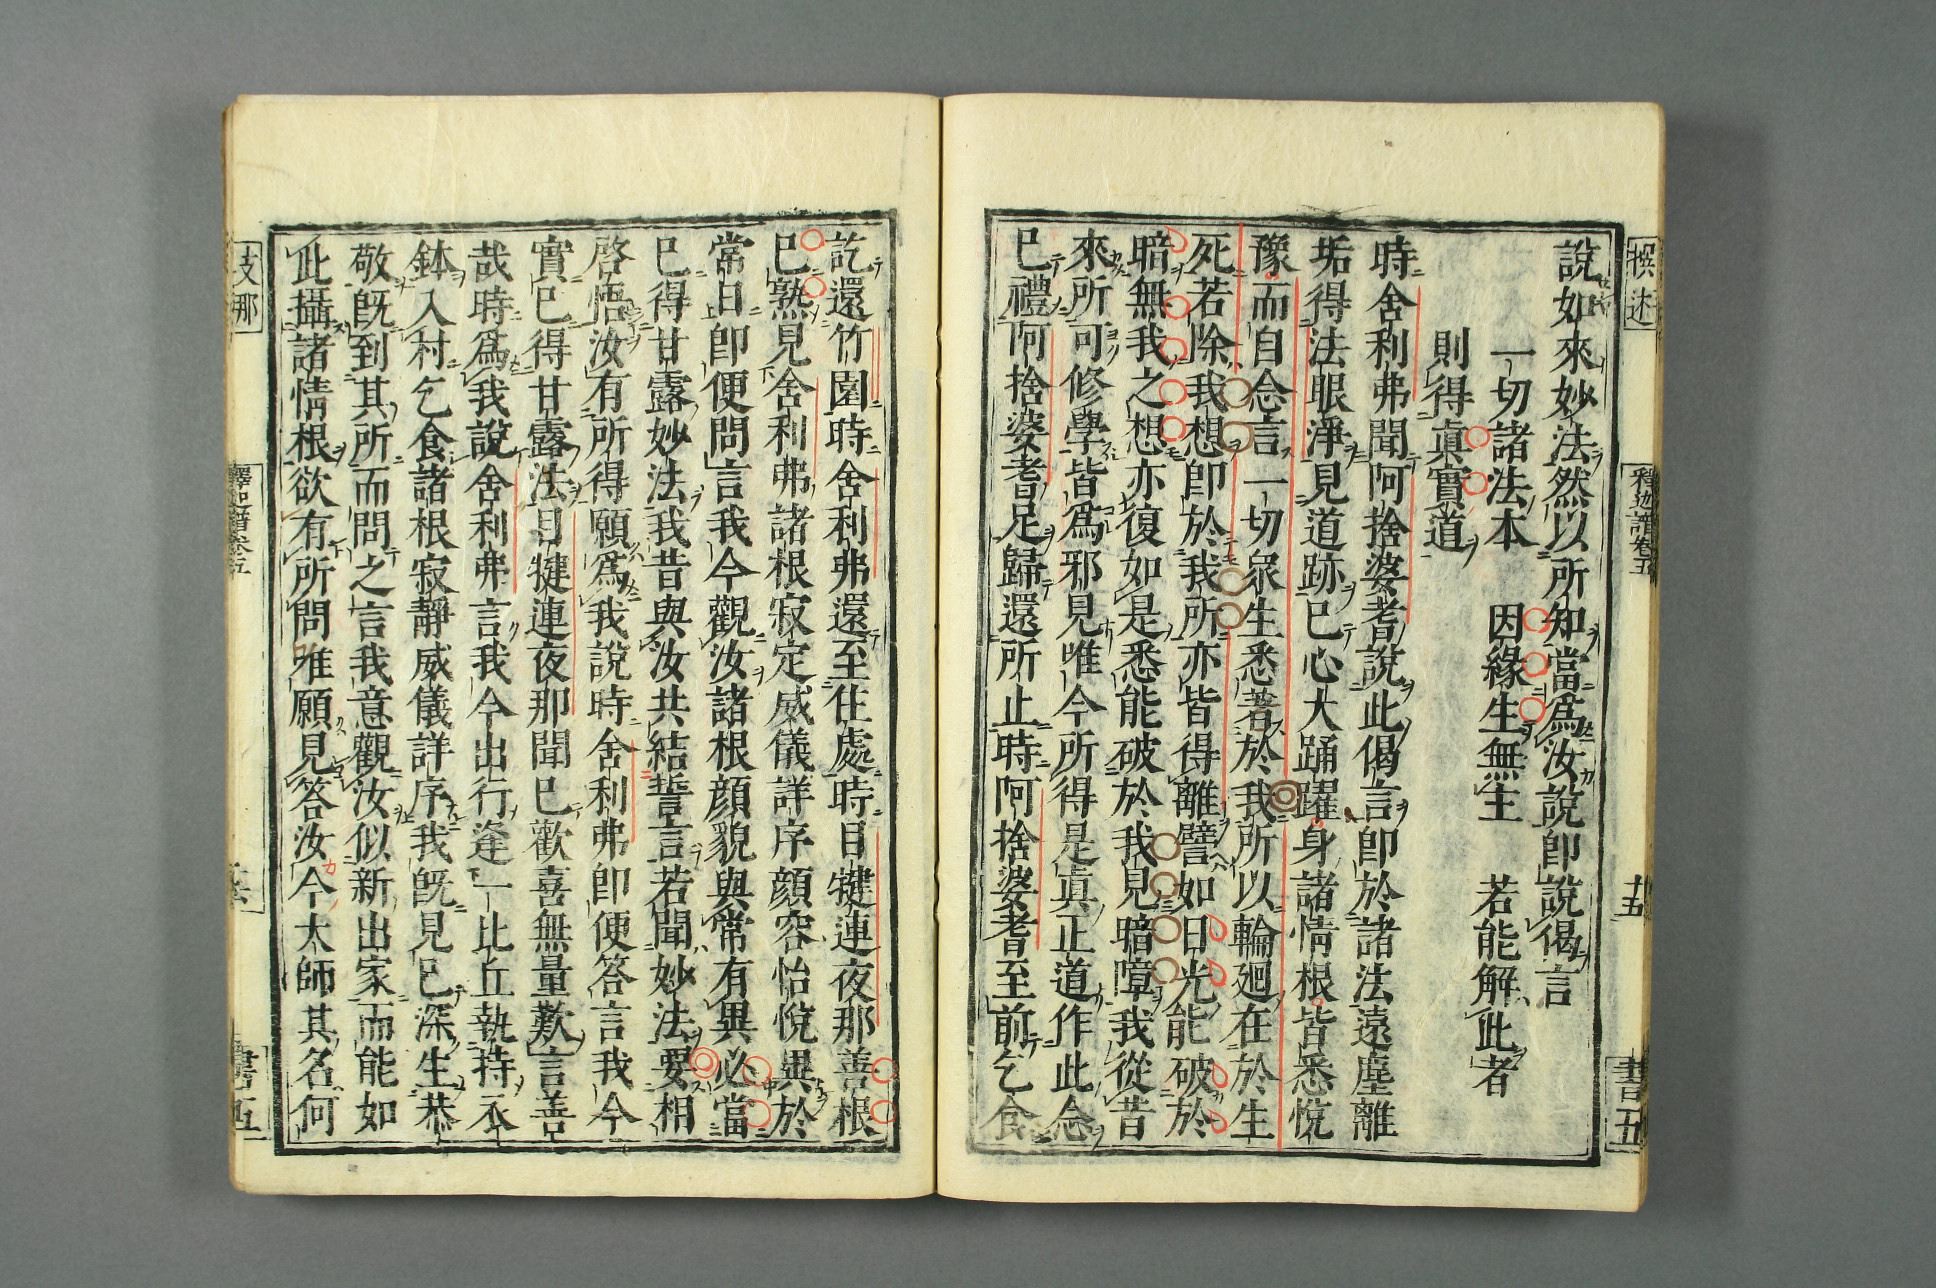 撰述 釋迦譜卷五 十五 書五
說如來妙法然以所知當爲汝說即說偈言
一切諸法本 因緣生無主 若能解此者
則得眞實道
時舍利弗聞阿捨婆耆說此偈言即於諸法遠塵離
垢得法眼淨見道跡已心大踊躍身諸情根皆悉悅
豫而自念言一切衆生悉著於我所以輪廻在於生
死若除我想即於我所亦皆得離譬如日光能破於
暗無我之想亦復如是悉能破於我見暗障我從昔
來所可修學皆爲邪見唯今所得是眞正道作此念
已禮阿捨婆耆足歸還所止時阿捨婆耆至前乞食
訖還竹園時舍利弗還至住處時目犍連夜那善根
已熟見舍利弗諸根寂定威儀詳序顏容怡悅異於
常日即便問言我今觀汝諸根顏貌與常有異必當
已得甘露妙法我昔與汝共結誓言若聞妙法要相
啓悟汝有所得願爲我說時舍利弗即便答言我今
實已得甘露法目犍連夜那聞已歡喜無量歎言善
哉時爲我說舍利弗言我今出行逢一比丘執持衣
鉢入村乞食諸根寂靜威儀詳序我既見已深生恭
敬既到其所而問之言我意觀汝似新出家而能如
此攝諸情根欲有所問唯願見答汝今大師其名何
支那 釋迦譜卷五 書五